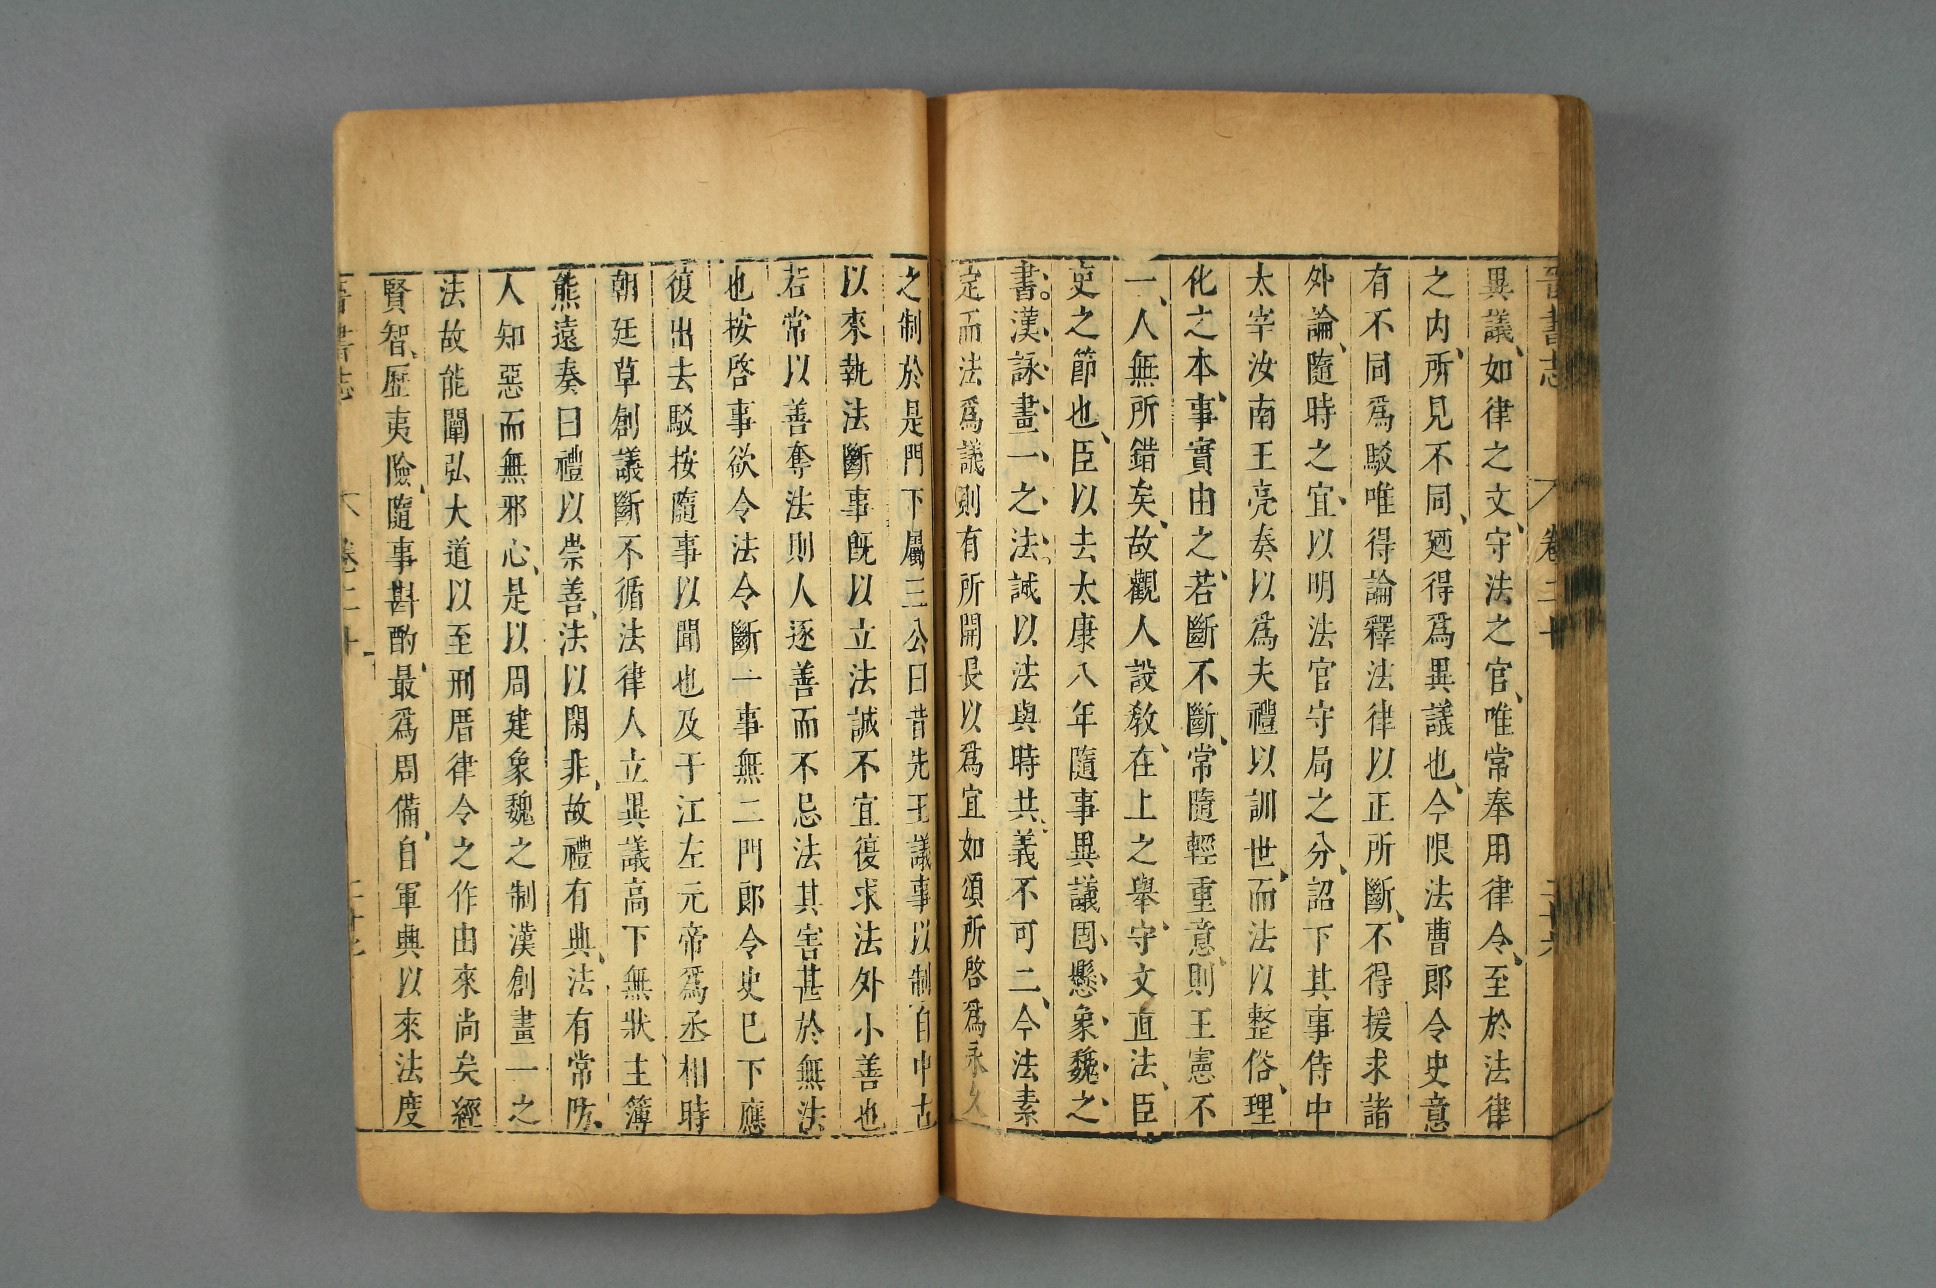 晉書志 卷三十
異議如律之文守法之官唯常奉用律令至於法律
之内所見不同廼得爲異議也今限法曹郎令史意
有不同爲駁唯得論釋法律以正所斷不得援求諸
外論隨時之宜以明法官守局之分詔下其事侍中
太宰汝南王亮奏以爲夫禮以訓世而法以整俗理
化之本事實由之若斷不斷常隨輕重意則王憲不
一人無所錯矣故觀人設教在上之舉守文直法臣
吏之節也臣以去太康八年隨事異議固懸象魏之
書漢詠畫一之法誠以法與時共義不可二今法素
定而法爲議則有所開長以爲宜如頌所啓爲永久
之制於是門下屬三公曰昔先王議事以制自中古
以來執法斷事旣以立法誠不宜復求法外小善也
若常以善奪法則人逐善而不忌法其害甚於無法
也按啓事欲令法令斷一事無二門郎令史已下應
復出去駁按隨事以聞也及于江左元帝爲丞相時
朝廷草創議斷不循法律人立異議高下無狀主簿
熊遠奏曰禮以崇善法以閑非故禮有典法有常防
人知惡而無邪心是以周建象魏之制漢創畫一之
法故能闡弘大道以至刑厝律令之作由來尚矣經
賢智歷夷險隨事斟酌最爲周備自軍興以來法度
晉書志 卷三十